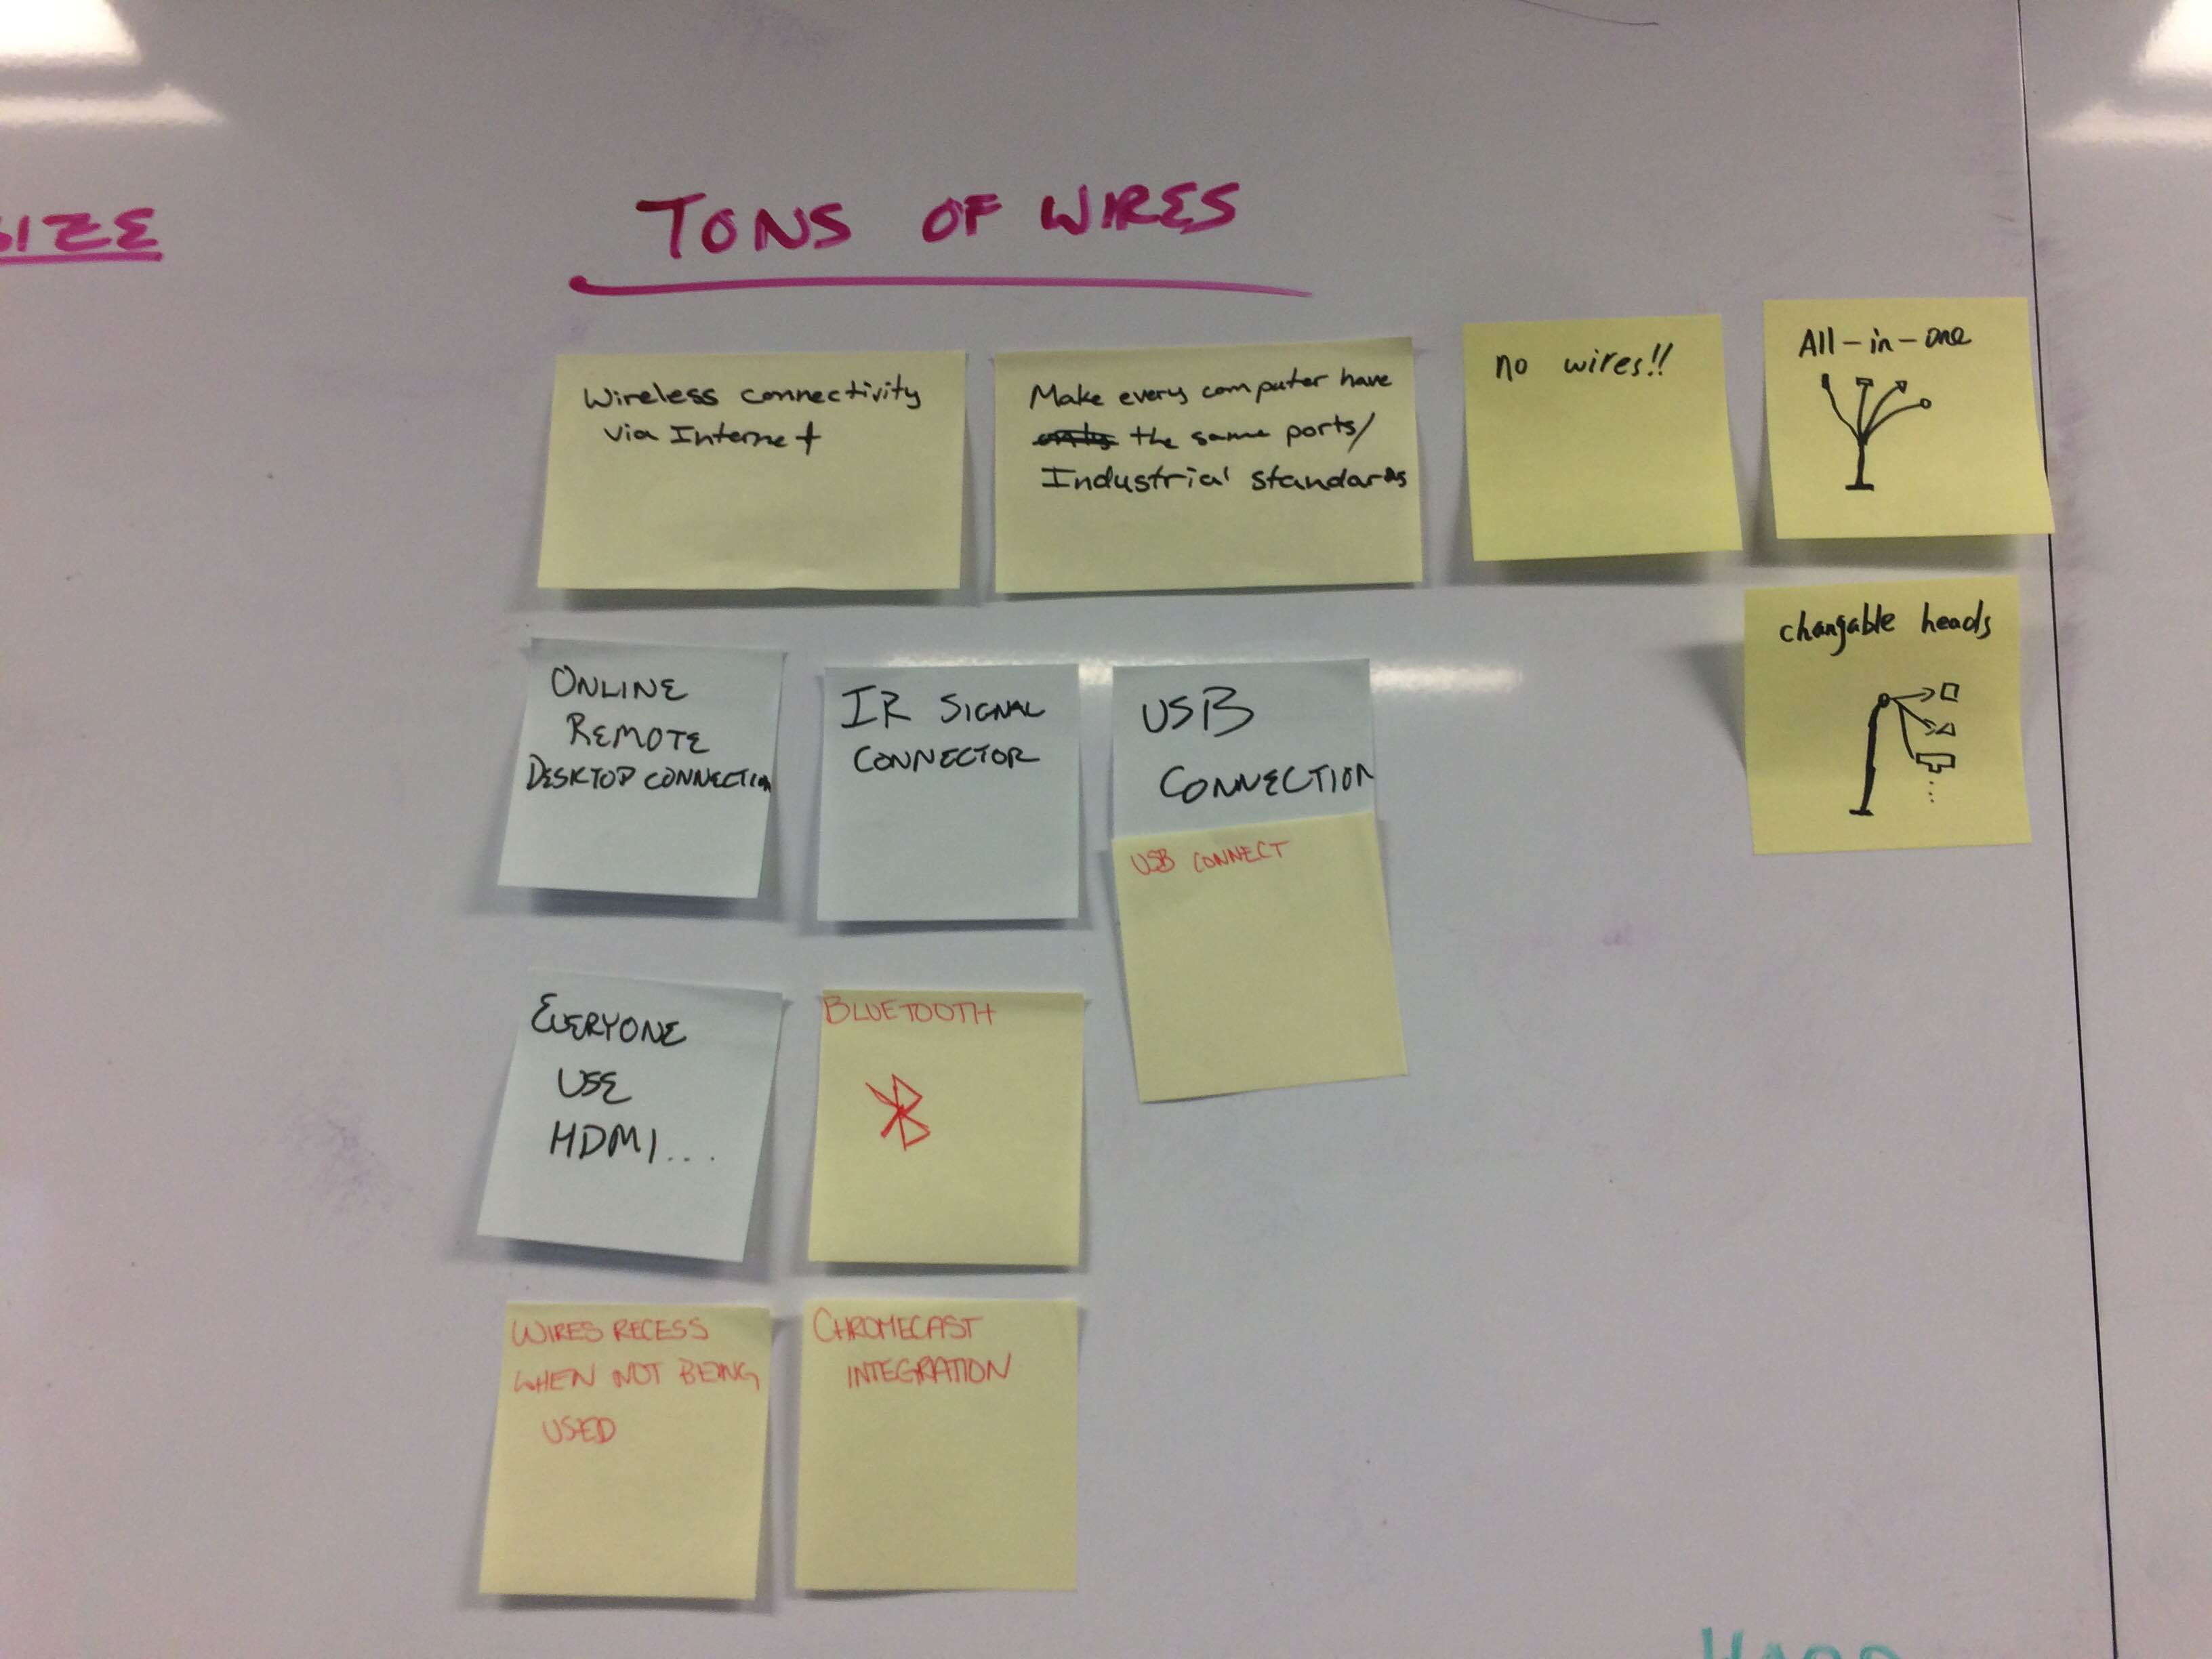 SIZE
TONS OF WIRES
Wireless connectivity
via Internet
Make every computer have
the same ports/
Industrial standards
no wires!!
All-in-one
changable heads
ONLINE
REMOTE
DESKTOP CONNECTION
IR SIGNAL
CONNECTOR
USB
CONNECTION
USB CONNECT
EVERYONE
USE
HDMI...
BLUETOOTH
WIRES RECESS
WHEN NOT BEING
USED
CHROMECAST
INTEGRATION
HARD